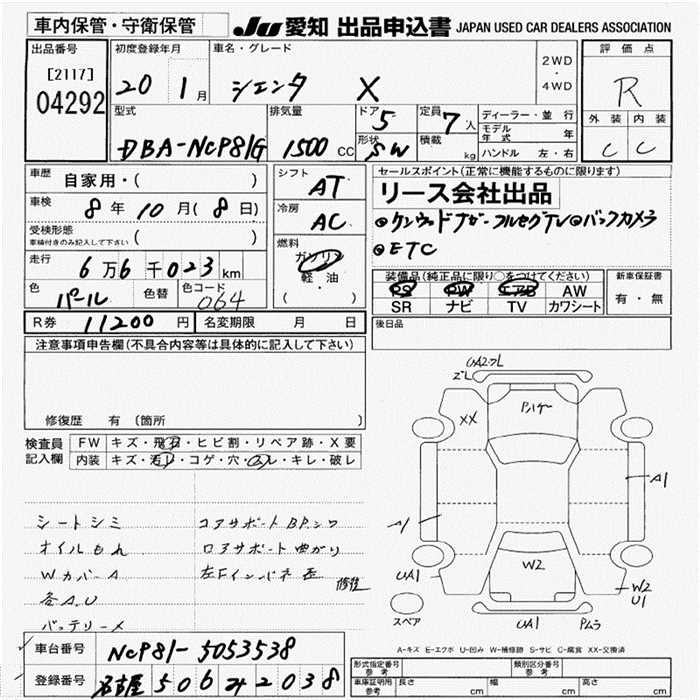 車内保管・守衛保管
JU 愛知 出品申込書 JAPAN USED CAR DEALERS ASSOCIATION
出品番号
[2117]
04292
初度登録年月
20 1月
車名・グレード
シエンタ X
2WD
・
4WD
評価点
R
外装 内装
C C
型式
DBA-NCP81G
排気量
1500 CC
ドア 5
形状 SW
定員 7人
積載 kg
ディーラー・並行
モデル年式 年
ハンドル 左・右
車歴 自家用・( )
車検 8年10月(8日)
受検形態
車検付きのみ記入して下さい ( )
走行 6万6千023km
色 パール 色替 色コード 064
R券 11200円 名変期限 月 日
シフト AT
冷房 AC
燃料
ガソリン
軽・油
セールスポイント(正常に機能するものに限ります)
リース会社出品
◎ケンウッドナビ・フルセグTV◎バックカメラ
◎ETC
装備品(純正品に限り○をつけてください)
PS PW エアB AW
SR ナビ TV カワシート
新車保証書
有・無
後日品
注意事項申告欄(不具合内容等は具体的に記入して下さい)
修復歴 有 (箇所 )
検査員
記入欄
FW キズ・飛石・ヒビ割・リペア跡・X要
内装 キズ・汚レ・コゲ・穴・スレ・キレ・破レ
シートシミ
オイルもれ
WカバーA
各A.U
バッテリーメ
コアサポートBP.シワ
ロアサポート曲がり
左Fインパネ歪
修祉
UA2.フL
XX
A1
A1
UA1
W2
W2
U1
UA1
スペア
A-キズ E-エクボ U-凹み W-補修跡 S-サビ C-腐食 XX-交換済
車台番号 NCP81-5053538
登録番号 名古屋 506 2038
形式指定番号
参考
類別区分番号
参考
車庫証明用
参考
長さ cm 幅 cm 高さ cm